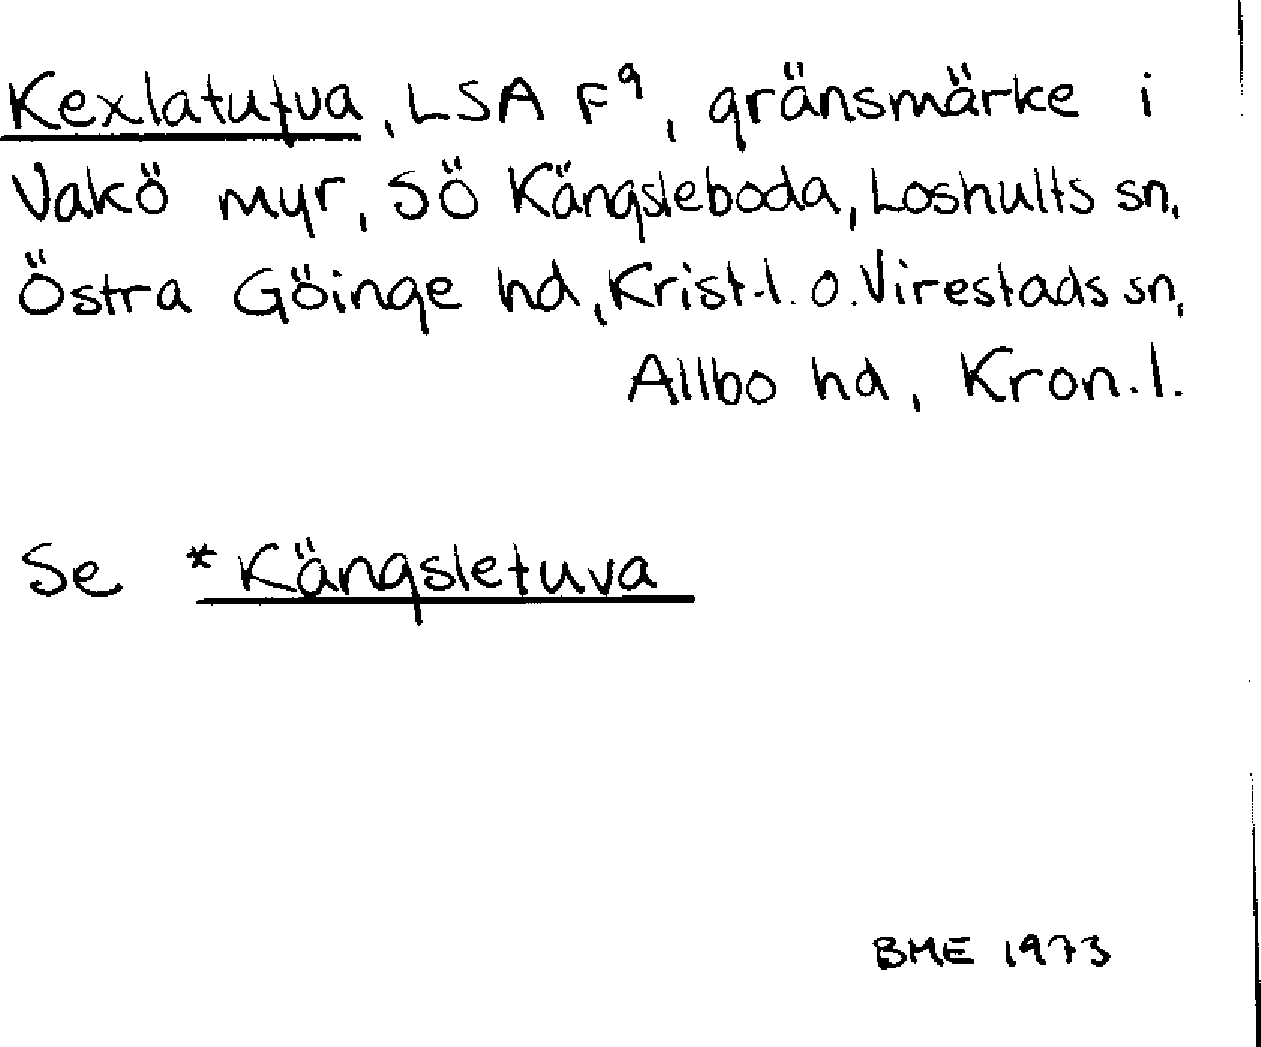 Kexlatufva, LSA F⁹, gränsmärke i
Vakö myr, SÖ Kängsleboda, Loshults sn,
Östra Göinge hd, Krist.l. o. Virestads sn,
Allbo hd, Kron.l.
Se *Kängsletuva
BME 1973